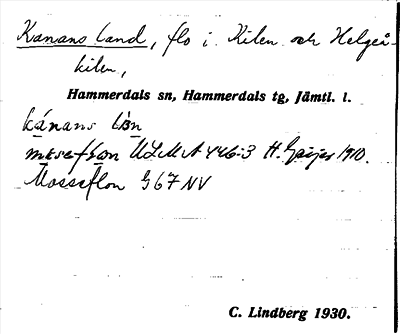 Kanans land, flo i Kilen och Helgeå-
kilen,
Hammerdals sn, Hammerdals tg, Jämtl. l.
kánans làn
måseflon ULMA 446:3 H. Geijer 1910.
Mosseflon G 67 NV
C. Lindberg 1930.